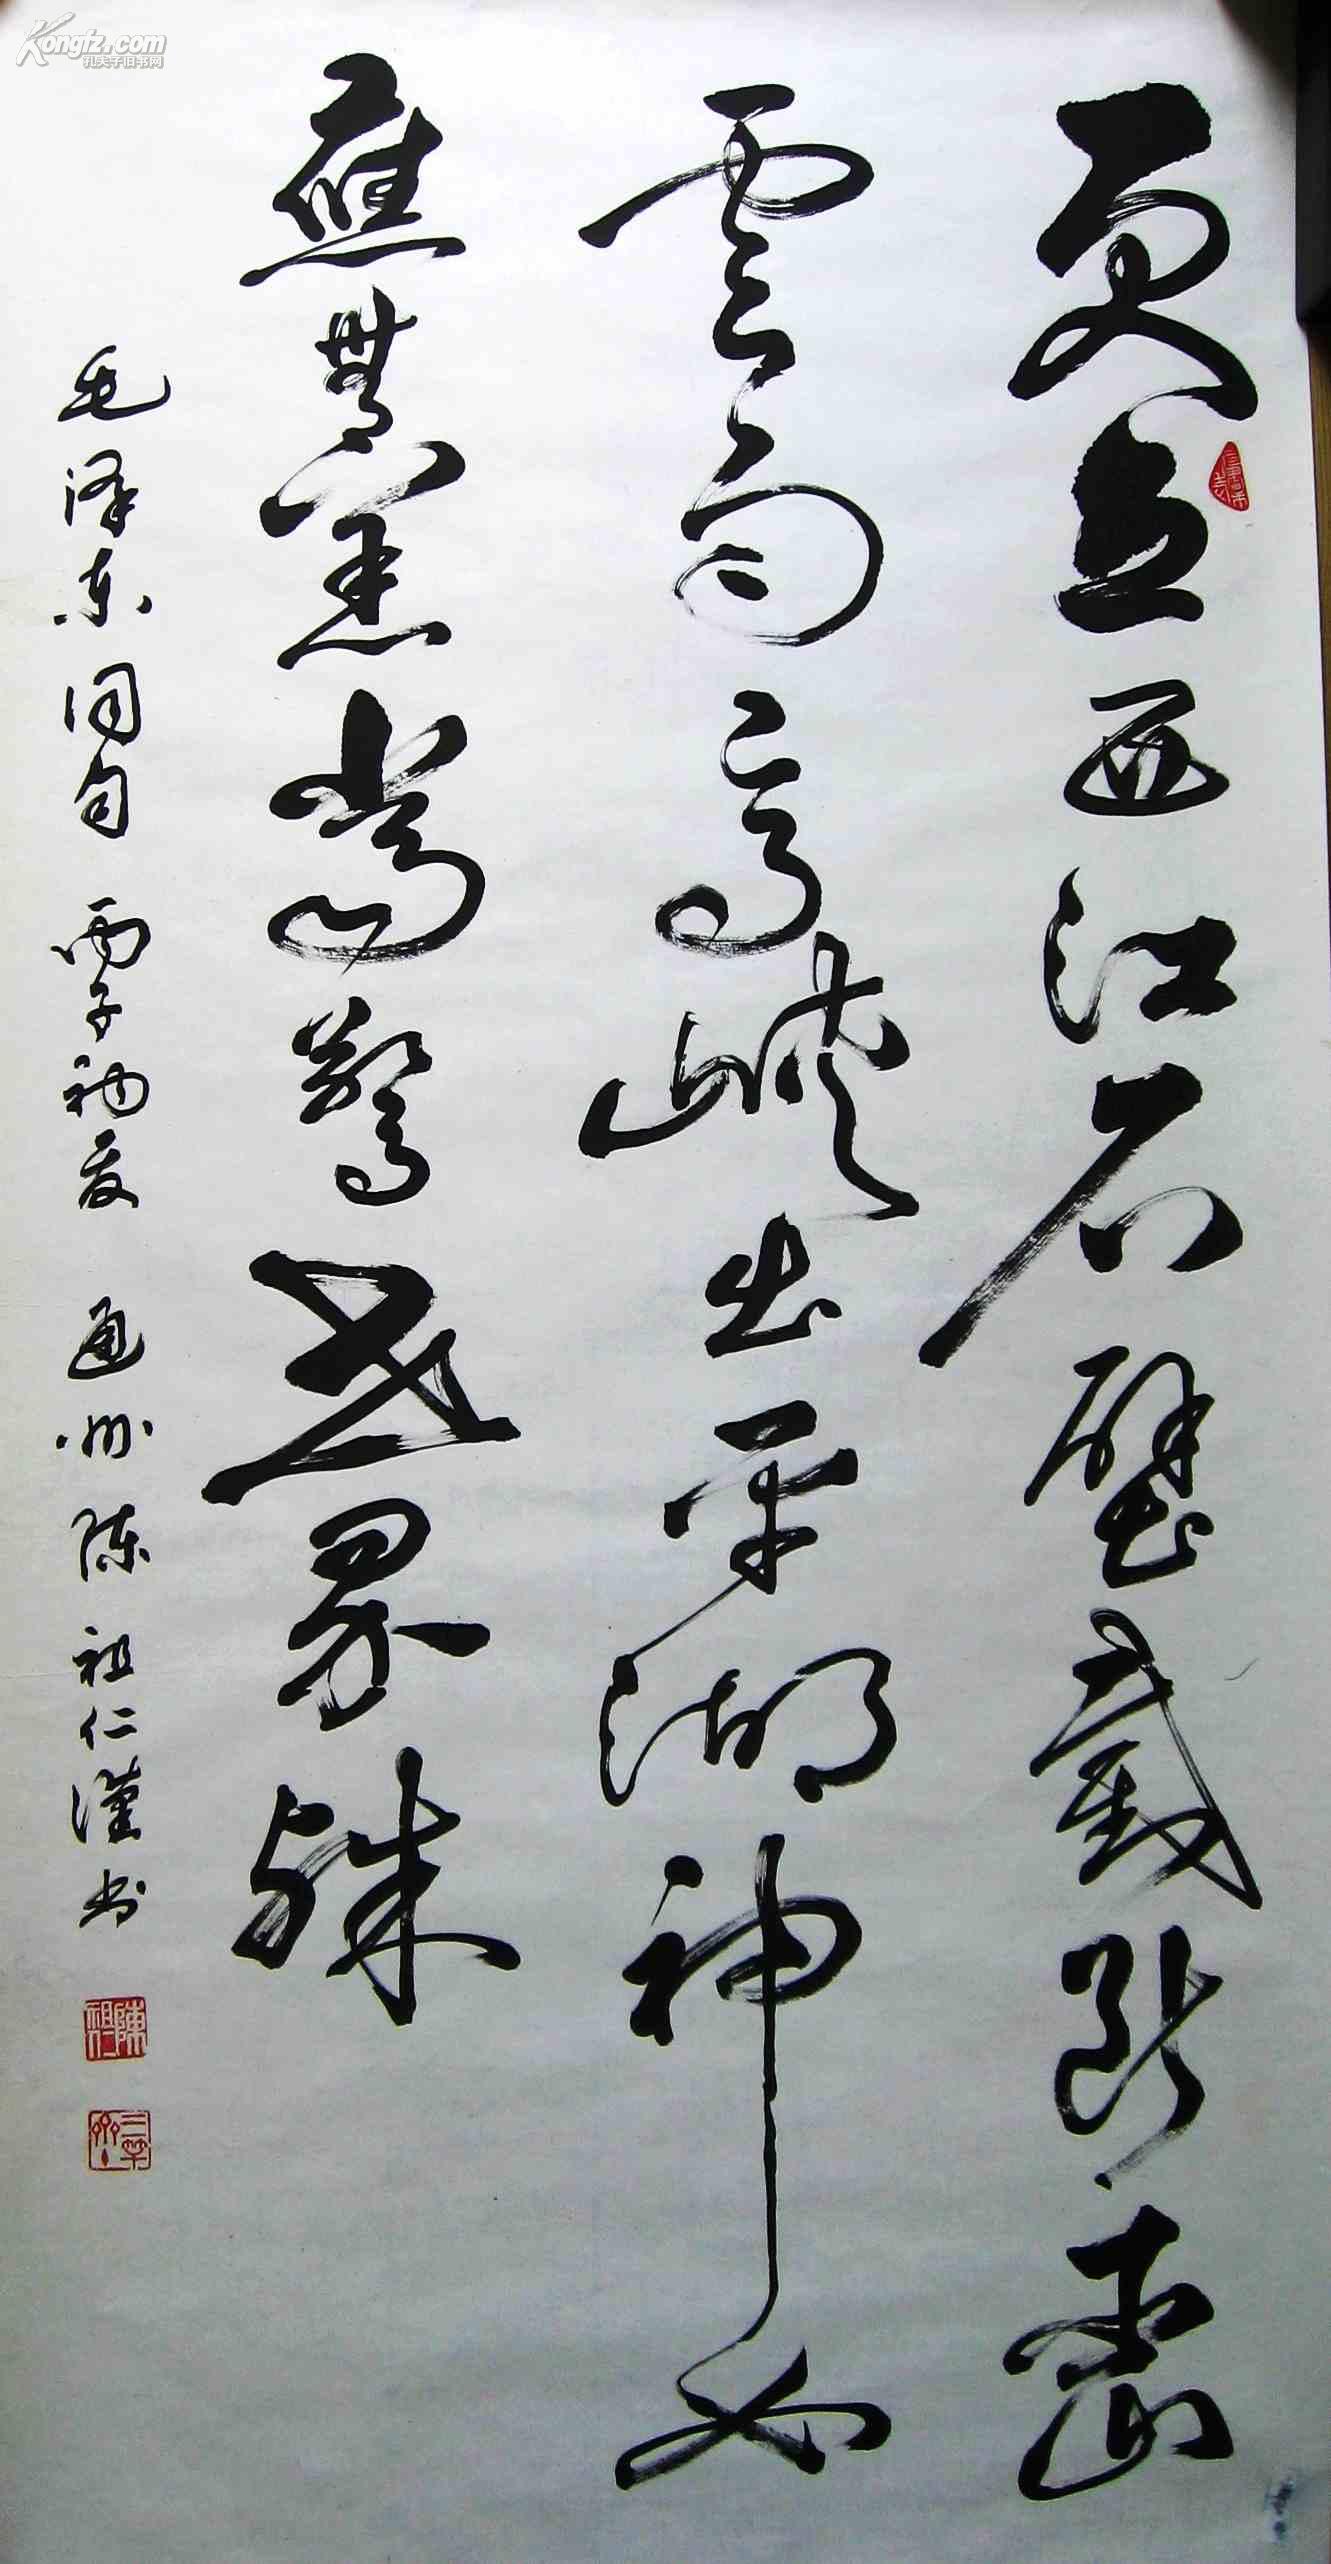 Kongfz.com
孔夫子旧书网
更立西江石壁截断巫山
雲雨高峡出平湖神女
應無恙當驚世界殊
毛泽东词句 丙子初夏 通州陈祖仁谨书
陳祖仁